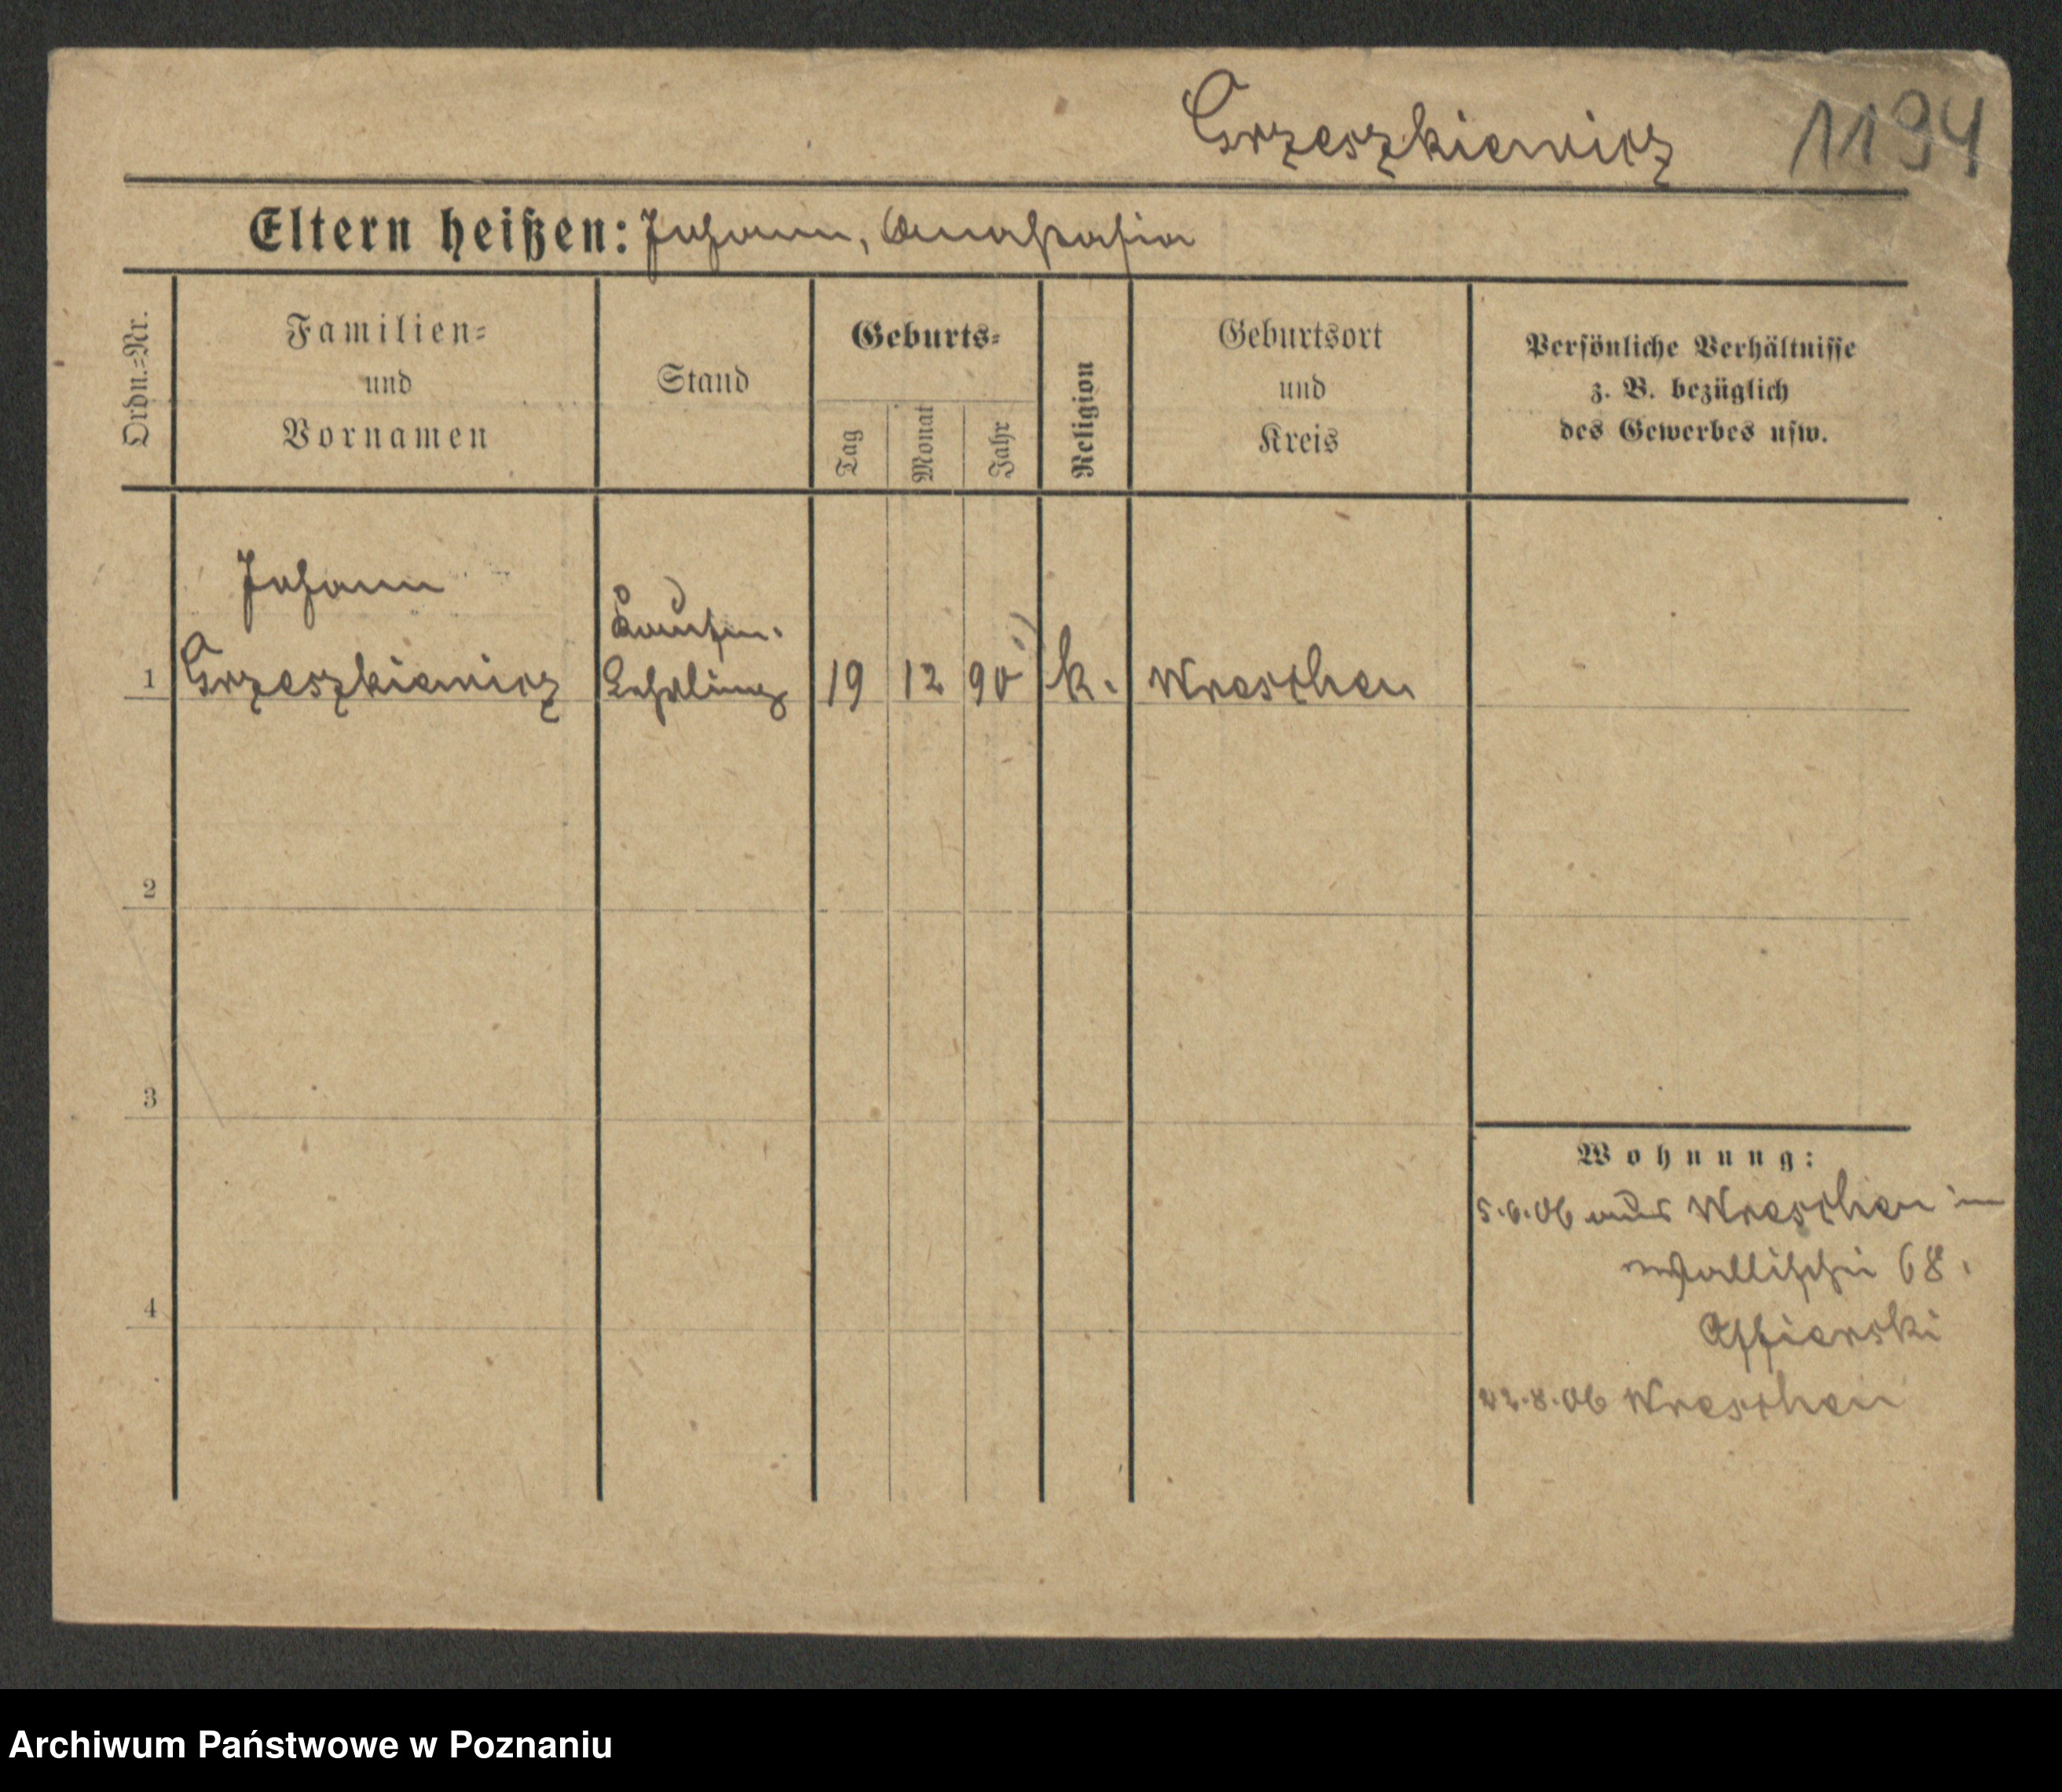 Grzeszkiewicz 1194
Eltern heißen: Johann, Anastasia
Ordn.=Nr.
Familien=
und
Vornamen
Stand
Geburts=
Tag
Monat
Jahr
Religion
Geburtsort
und
Kreis
Persönliche Verhältnisse
z. B. bezüglich
des Gewerbes usw.
Johann
Kaufm.
1 Grzeszkiewicz Lehrling 19 12 90 k. Wreschen
2
3
Wohnung:
5.6.06 aus Wreschen in
Wallischei 68.
4
22.8.06 Wreschen
Archiwum Państwowe w Poznaniu